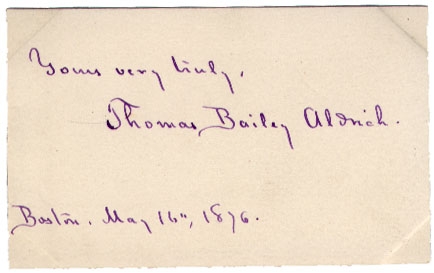 Yours very truly,
Thomas Bailey Aldrich.
Boston. May 16", 1876.